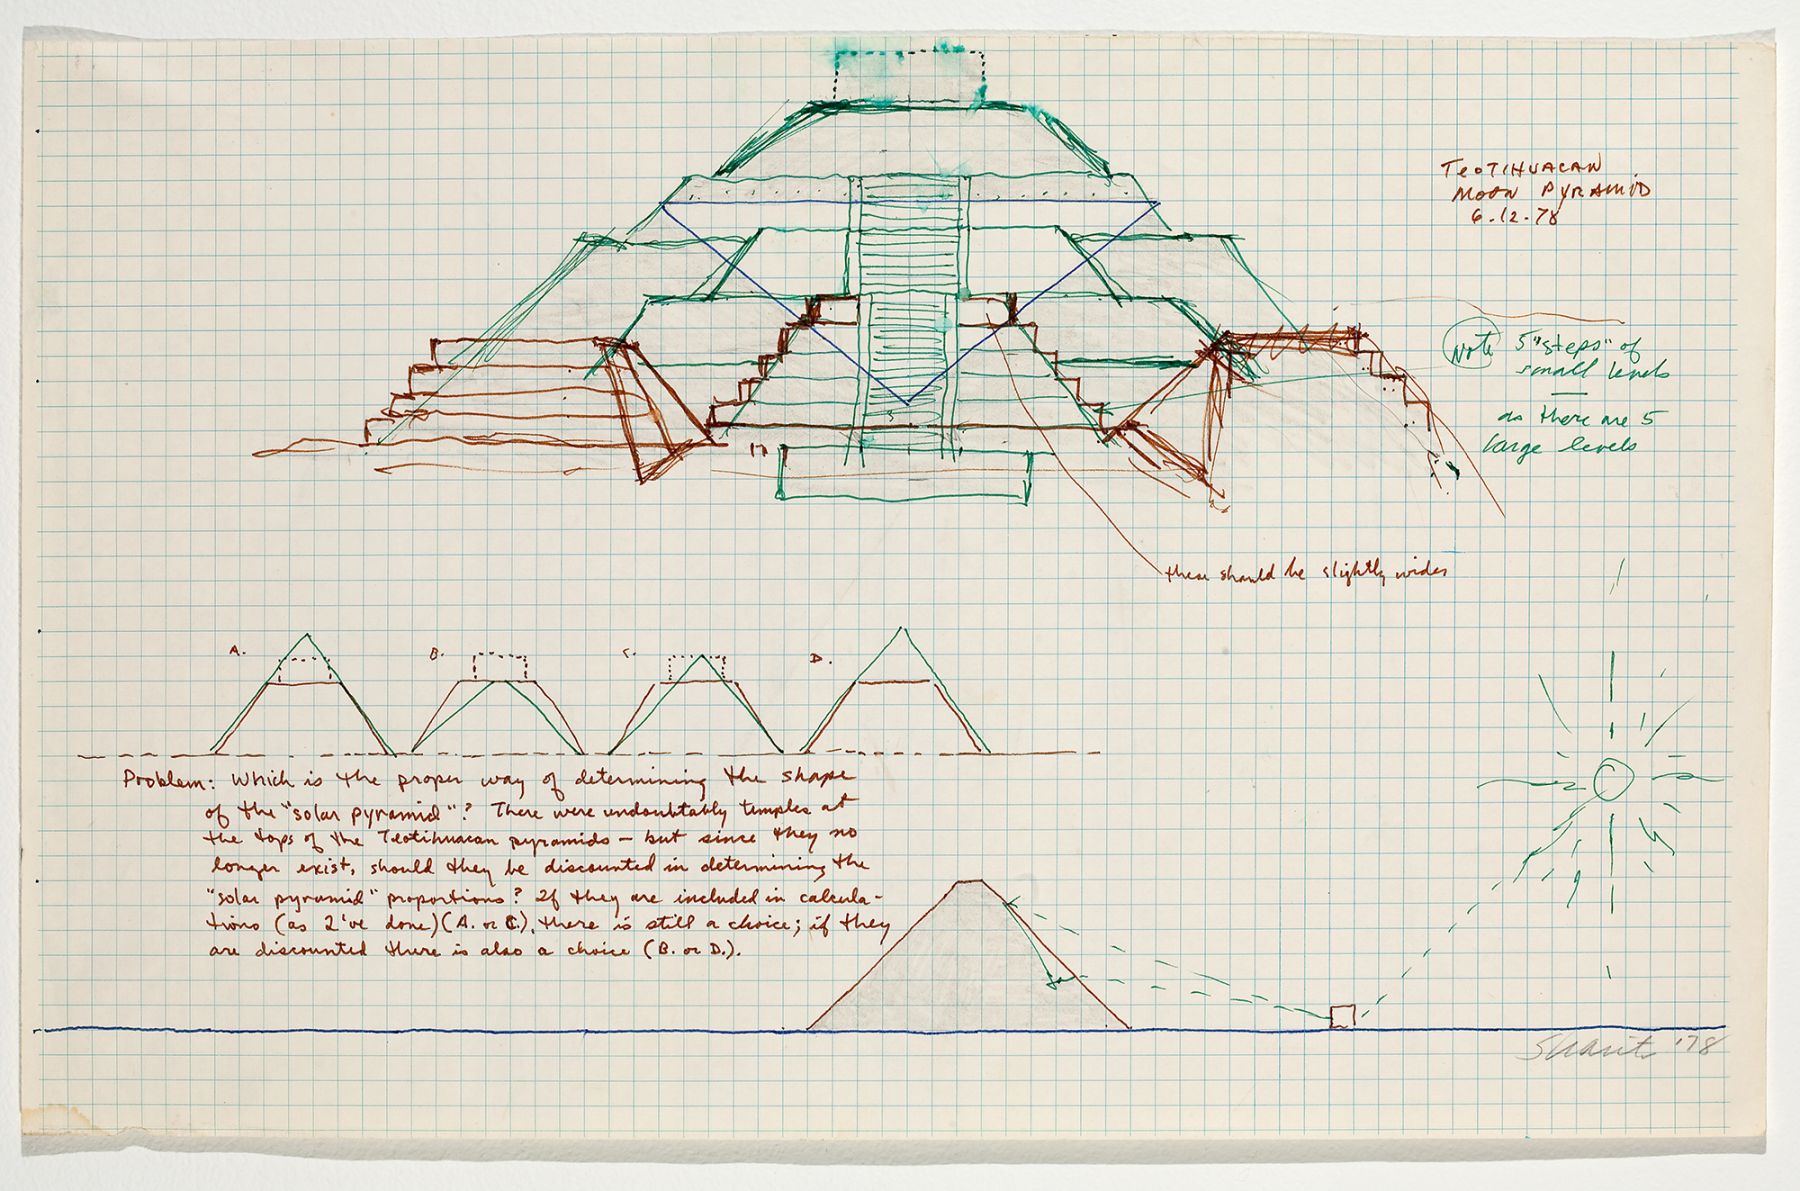 TEOTIHUACAN
MOON PYRAMID
6-12-78
Note 5 "steps" of
small levels
as there are 5
large levels
these should be slightly wider
A. B. C. D.
Problem: Which is the proper way of determining the shape
of the "solar pyramid"? There were undoubtably temples at
the tops of the Teotihuacan pyramids — but since they no
longer exist, should they be discounted in determining the
"solar pyramid" proportions? If they are included in calcula-
tions (as I've done) (A. or C.), there is still a choice; if they
are discounted there is also a choice (B. or D.).
Sharits '78